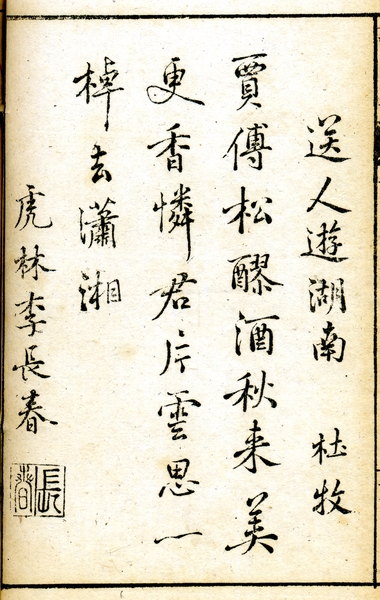 送人遊湖南 杜牧
賈傅松醪酒秋来美
更香憐君片雲思一
棹去瀟湘
虎林李長春
長春